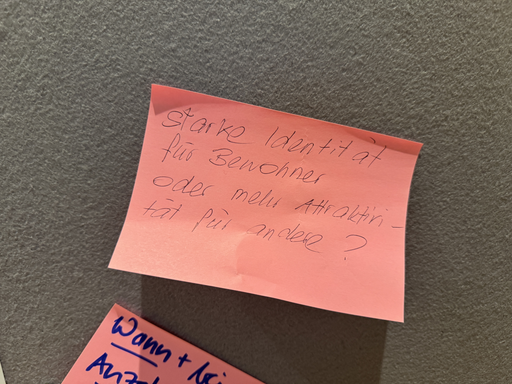 starke Identität
für Bewohner
oder mehr Attraktivi-
tät für andere?
Wann +